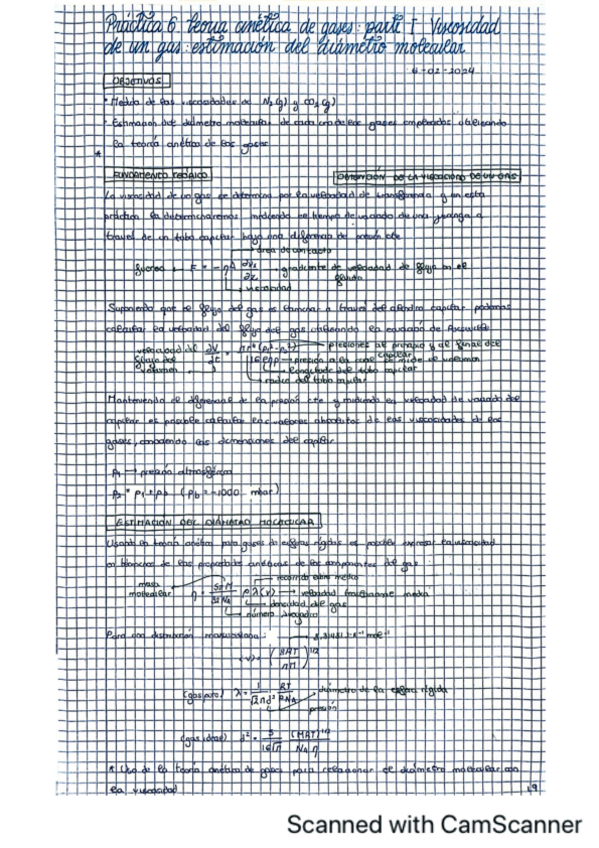 Práctica 6 teoría cinética de gases: parte I Viscosidad
de un gas: estimación del diámetro molecular
6-02-2024
OBJETIVOS
• Medida de las viscosidades de N₂(g) y CO₂(g)
• Estimación del diámetro molecular de cada uno de los gases empleados utilizando
la teoría cinética de los gases
FUNDAMENTO TEÓRICO
OBTENCIÓN DE LA VISCOSIDAD DE UN GAS
La viscosidad de un gas se determina por la velocidad de transferencia y en esta
práctica la determinaremos midiendo el tiempo de vaciado de una jeringa a
través de un tubo capilar bajo una diferencia de presión cte
área de contacto
fuerza ← F = -ηA ∂Vx/∂z → gradiente de velocidad de flujo en el
fluido
viscosidad
Suponiendo que el flujo del gas es laminar a través del cilindro capilar podemos
calcular la velocidad del flujo del gas utilizando la ecuación de Poiseuille
velocidad del dV/dt = πr⁴(p₁²-p₂²)/16ηlp → presiones al principio y al final del
capilar
flujo del
volumen
presión a la cual se mide el volumen
longitud del tubo capilar
radio del tubo capilar
Manteniendo la diferencia de la presión cte y midiendo la velocidad de vaciado del
capilar es posible calcular los valores absolutos de las viscosidades de los
gases, conociendo las dimensiones del capilar
P₁ → presión atmosférica
ESTIMACIÓN DEL DIÁMETRO MOLECULAR
Usando la teoría cinética para gases de esferas rígidas es posible expresar la viscosidad
en términos de las propiedades cinéticas de los componentes del gas
recorrido libre medio
masa
molecular
η = 5πM/32NA ρλ⟨v⟩ → velocidad media
densidad del gas
número Avogadro
Para una distribución maxwelliana:
⟨v⟩ = (8RT/πM)^1/2
(gas puro) λ = 1/√2πd² RT/PNA → diámetro de la esfera rígida
presión
(gas ideal) d² = 5/16√π (MRT)^1/2/NA η
* Uso de la teoría cinética de gases para relacionar el diámetro molecular con
la viscosidad
Scanned with CamScanner